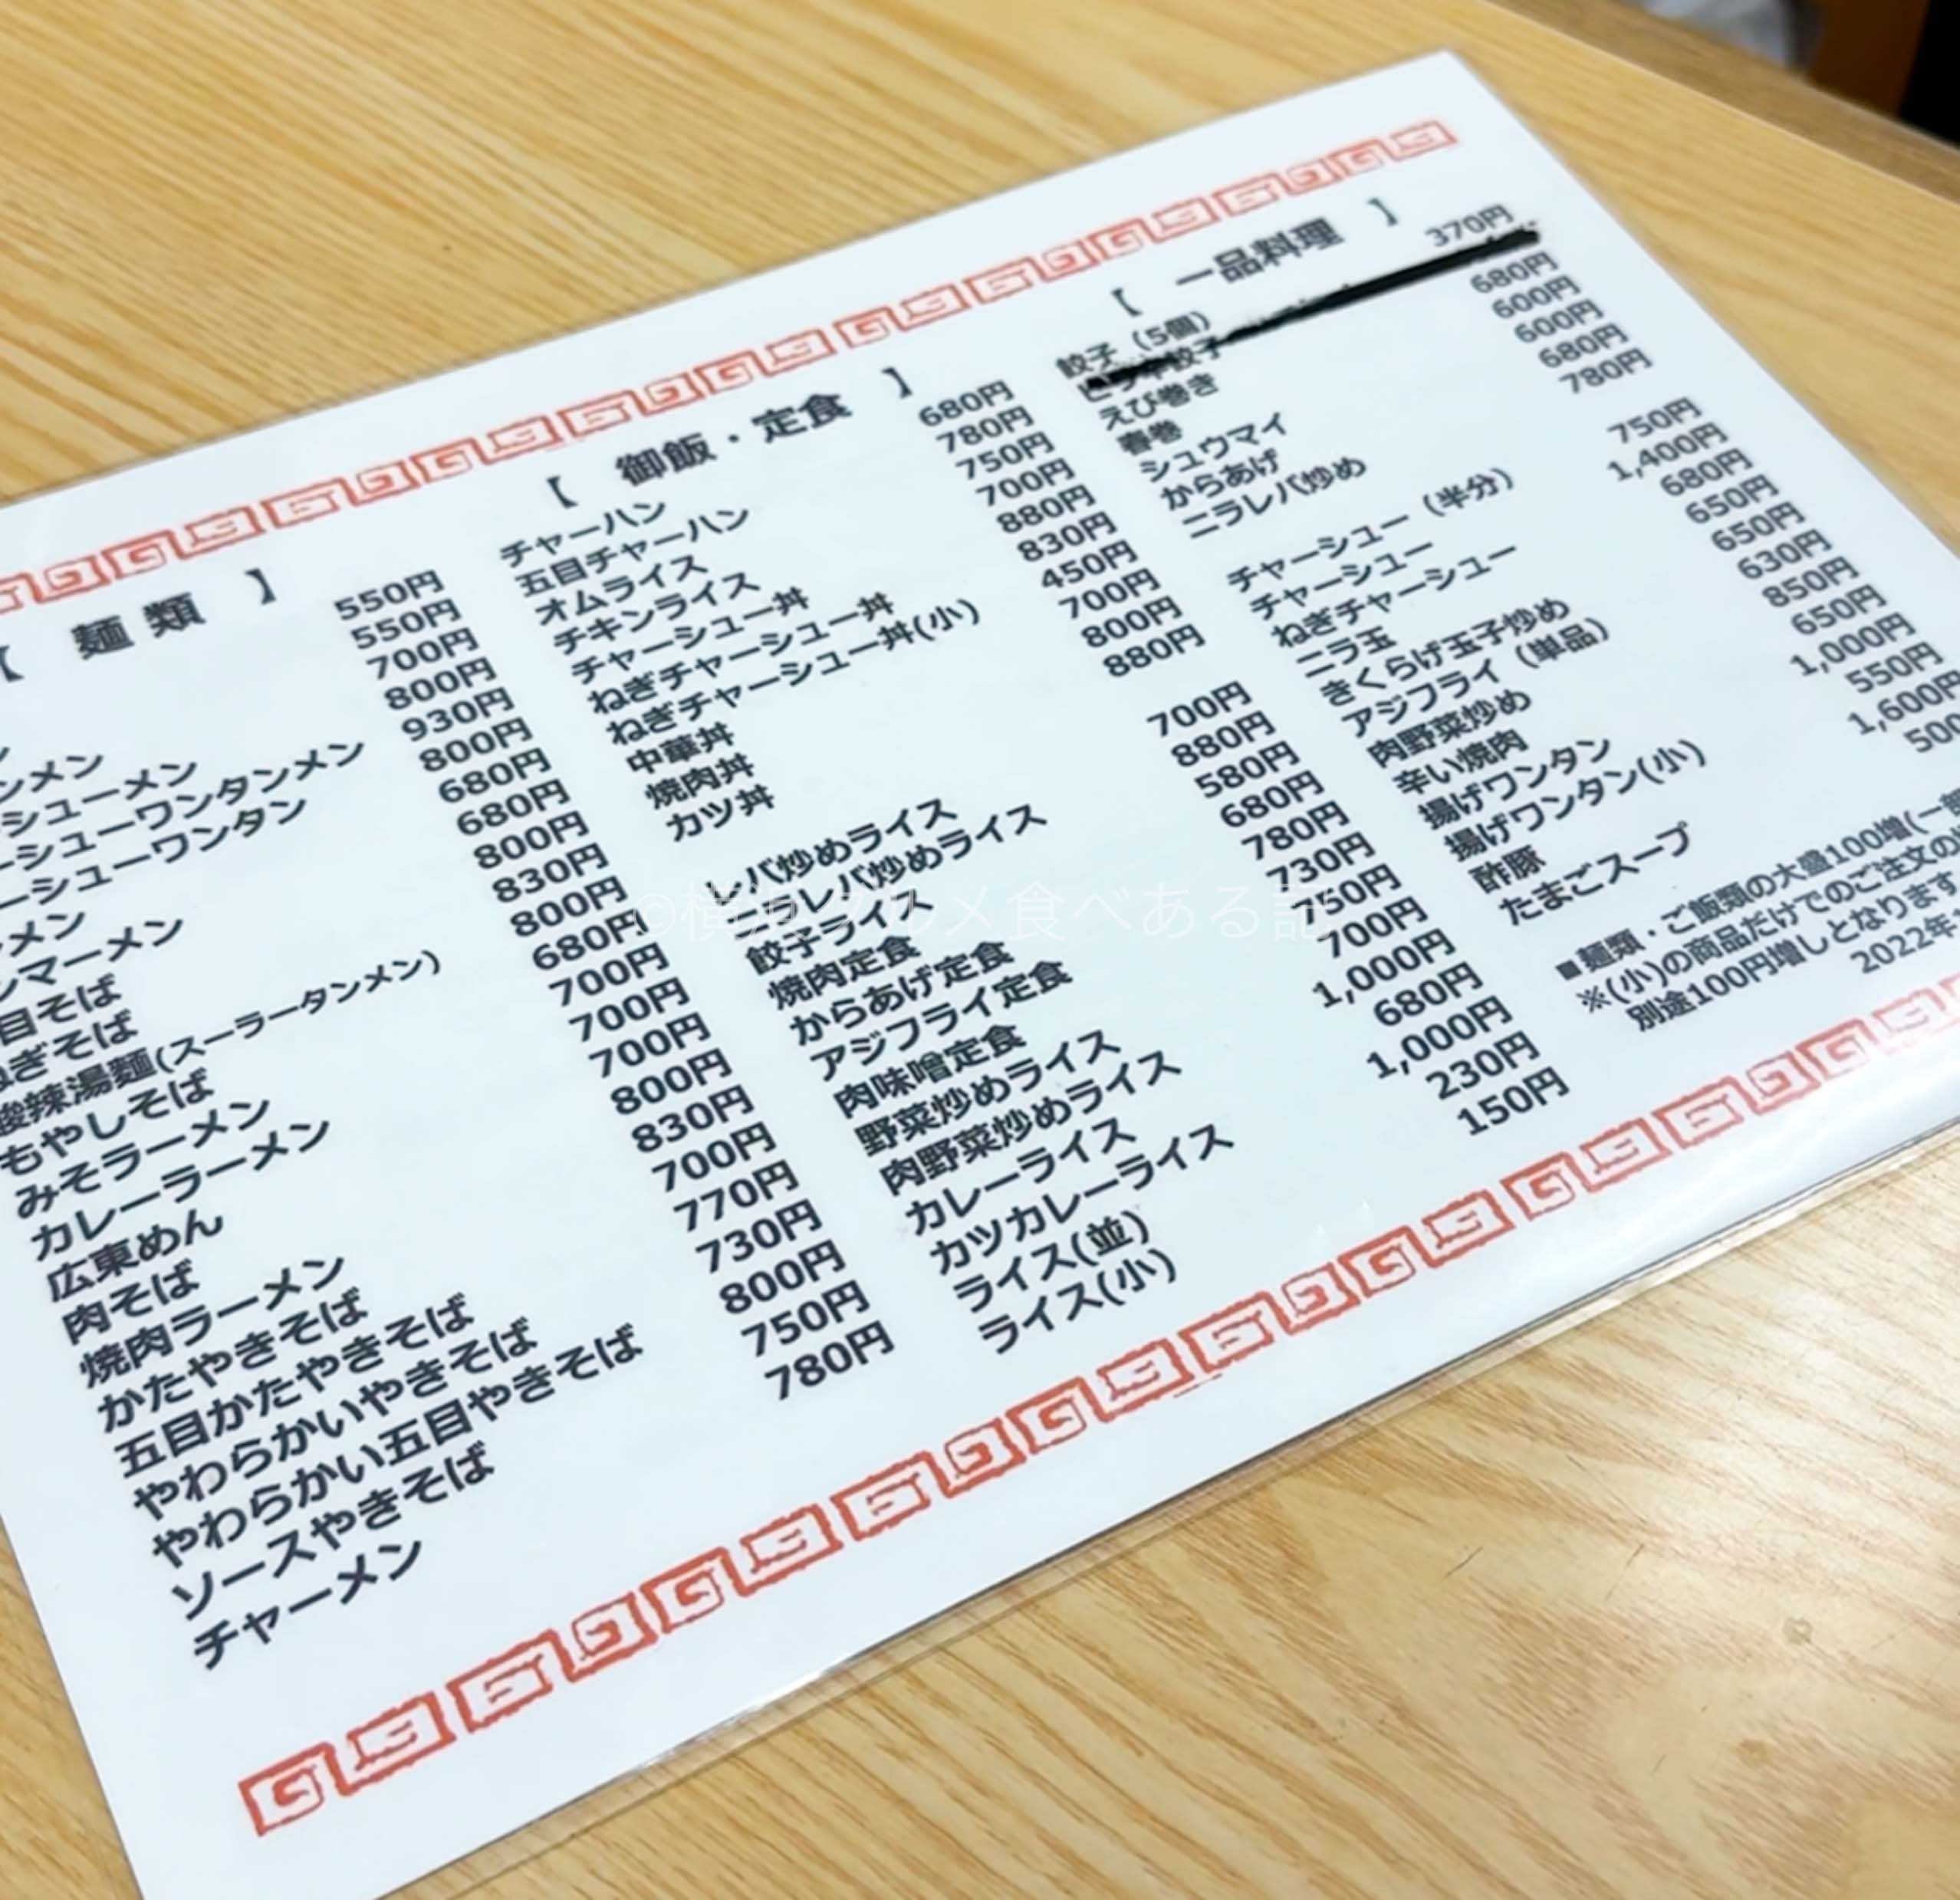 【 麺 類 】
550円
550円
ンメン 700円
シューメン 800円
ーシューワンタンメン 930円
ーシューワンタン 800円
メン 680円
ンマーメン 680円
目そば 800円
ねぎそば 830円
酸辣湯麺(スーラータンメン) 800円
もやしそば 680円
みそラーメン 700円
カレーラーメン 700円
広東めん 700円
肉そば 800円
焼肉ラーメン 830円
かたやきそば 700円
五目かたやきそば 770円
やわらかいやきそば 730円
やわらかい五目やきそば 800円
ソースやきそば 750円
チャーメン 780円
【 御飯・定食 】
チャーハン 680円
五目チャーハン 780円
オムライス 750円
チキンライス 700円
チャーシュー丼 880円
ねぎチャーシュー丼 830円
ねぎチャーシュー丼(小) 450円
中華丼 700円
焼肉丼 800円
カツ丼 880円
レバ炒めライス 700円
レバ炒めライス 880円
餃子ライス 580円
焼肉定食 680円
からあげ定食 780円
アジフライ定食 730円
肉味噌定食 750円
野菜炒めライス 700円
肉野菜炒めライス 1,000円
カレーライス 680円
カツカレーライス 1,000円
ライス(並) 230円
ライス(小) 150円
【 一品料理 】
餃子（5個） 370円
餃子
えび巻き 680円
春巻 600円
シュウマイ 600円
からあげ 680円
ニラレバ炒め 780円
チャーシュー（半分） 750円
チャーシュー 1,400円
ねぎチャーシュー 680円
ニラ玉 650円
きくらげ玉子炒め 650円
アジフライ（単品） 630円
肉野菜炒め 850円
辛い焼肉 650円
揚げワンタン 1,000円
揚げワンタン(小) 550円
酢豚 1,600円
たまごスープ 500
■麺類・ご飯類の大盛100増(一部
※(小)の商品だけでのご注文の
別途100円増しとなります
2022年
©横浜グルメ食べある記